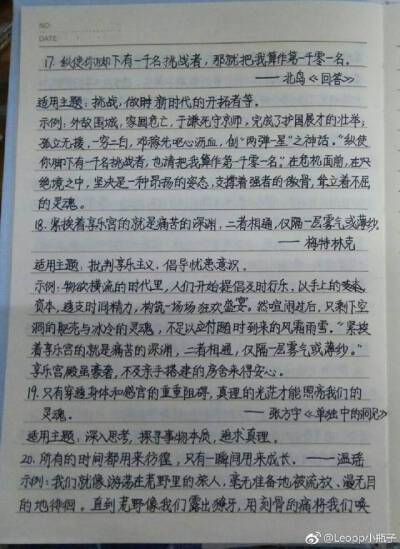 NO.
DATE
17. 纵使你脚下有一千名挑战者，那就把我算作第一千零一名。
——北岛《回答》
适用主题：挑战，做时新时代的开拓者等。
示例：外敌围城，家国危亡，于谦死守京师，完成了护国展才的壮举；
孤立无援，一穷二白，邓稼先呕心沥血，创“两弹一星”之神话。“纵使
你脚下有一千名挑战者，也请把我算作第一千零一名”。在危机面前，在
绝境之中，坚决是一种昂扬的姿态，支撑着强者的傲骨，耸立着不屈
的灵魂。
18. 紧挨着享乐宫的就是痛苦的深渊，二者相通，仅隔一层雾气或薄纱。
——梅特林克
适用主题：批判享乐主义，倡导忧患意识。
示例：物欲横流的时代里，人们开始提倡及时行乐，以手上的
资本，透支时间精力，构筑一场场狂欢盛宴。然喧闹过后，只剩下空
洞的躯壳与冰冷的灵魂，不足以应付随时到来的风霜雨雪。“紧挨
着享乐宫的就是痛苦的深渊，二者相通，仅隔一层雾气或薄纱。”
享乐宫殿虽豪奢，不及亲手搭建的房舍来得安心。
19. 只有穿越身体和感官的重重阻碍，真理的光芒才能照亮我们的
灵魂。——张方宇《单独中的洞见》
适用主题：深入思考，探寻事物本质，追求真理。
20. 所有的时间都用来彷徨，只有一瞬间用来成长。——温瑶
示例：我们就像游荡在荒野里的旅人，毫无准备地被流放、漫无目
的地徘徊。直到荒野像我们露出獠牙，用刻骨的痛将我们唤
@Leopp小瓶子